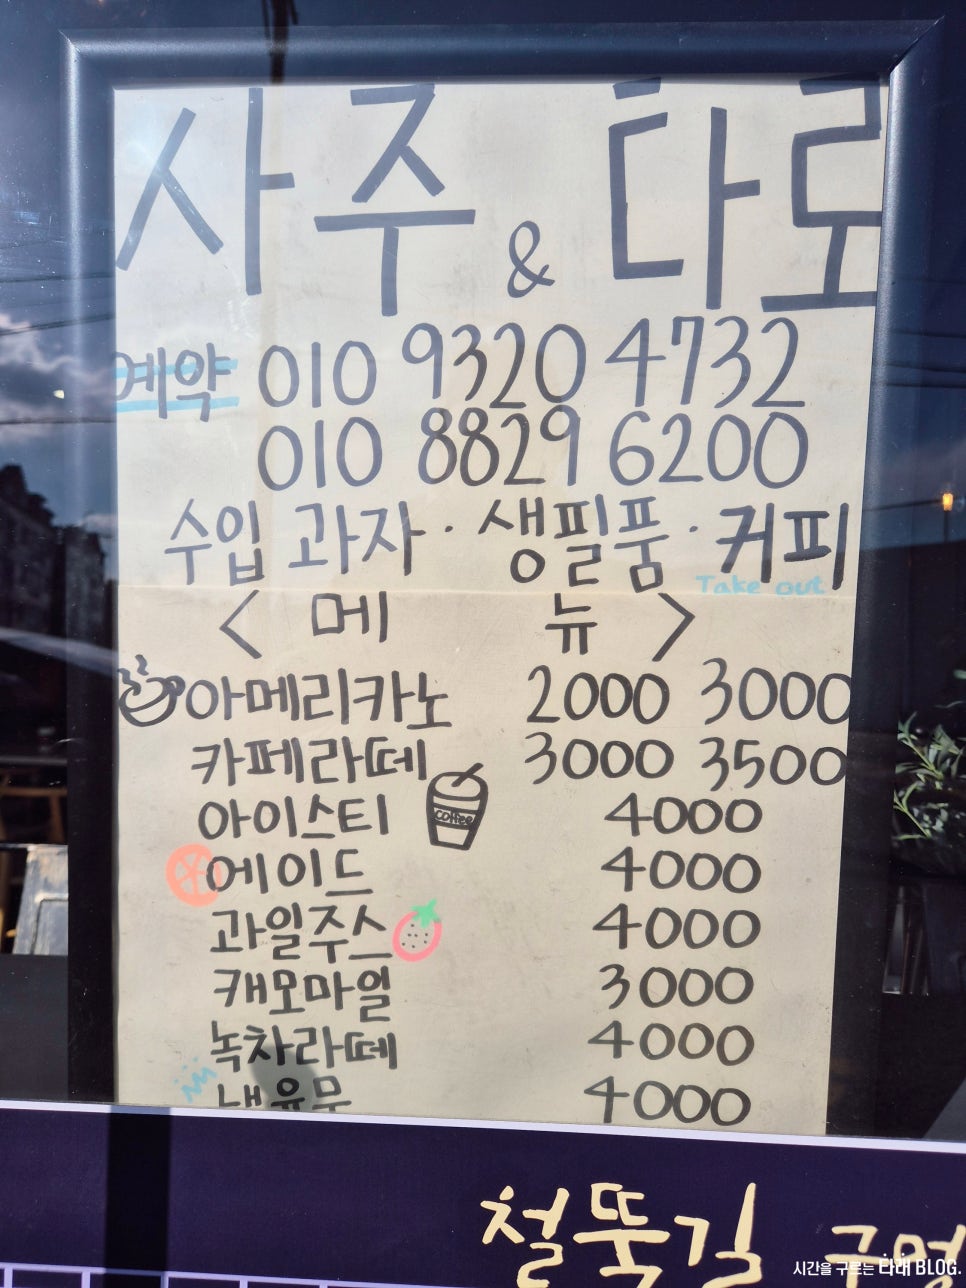 사주 & 타로
예약 010 9320 4732
010 8829 6200
수입 과자 · 생필품 · 커피
Take out
< 메 뉴 >
아메리카노 2000 3000
카페라떼 3000 3500
coffee
아이스티 4000
에이드 4000
과일주스 4000
캐모마일 3000
녹차라떼 4000
4000
철뚝길
시간을 구르는 타래 BLOG.